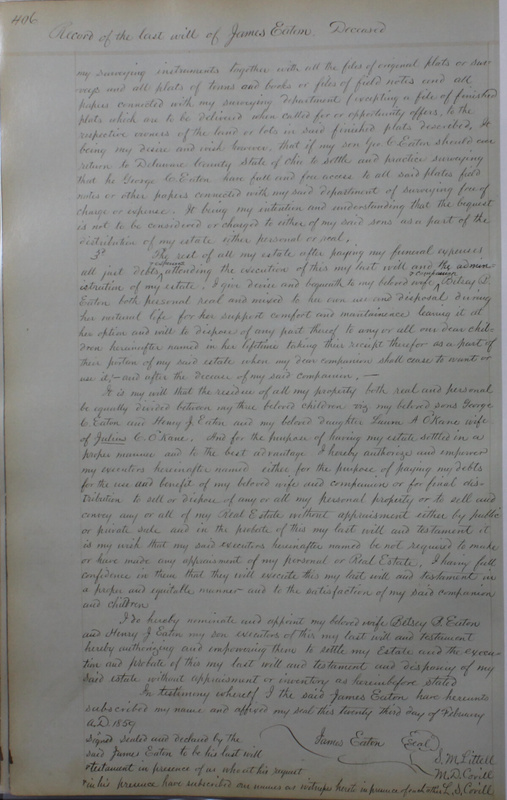 406
Record of the last will of James Eaton Deceased
my surveying instruments together with all the files of original plats or sur-
veys and all plats of towns and books or files of field notes and all
papers connected with my surveying department (excepting a file of finished
plats which are to be delivered when called for or opportunity offers, to the
respective owners of the land or lots in said finished plats described. It
being my desire and wish however, that if my son Geo C Eaton should ever
return to Delaware County State of Ohio to settle and practice surveying
that he George C. Eaton have full and free access to all said plates field
notes or other papers connected with my said department of surveying free of
charge or expense. It being my intention and understanding that the bequest
is not to be considered or charged to either of my said sons as a part of the
distribution of my estate either personal or real.
3d The rest of all my estate after paying my funeral expenses
all just debts & expenses attending the execution of this my last will and the admin
istration of my estate. I give devise and bequeath to my beloved wife & companion Betsey P.
Eaton both personal real and mixed to her own use and disposal during
her natural life for her support comfort and maintainence leaving it at
her option and will to dispose of any part thereof to any or all our dear chil-
dren hereinafter named in her lifetime taking their receipt therefor as a part of
their portion of my said estate when my dear companion shall cease to want or
use it,- and after the decease of my said companion. -
It is my will that the residue of all my property both real and personal
be equally divided between my three beloved children viz my beloved sons George
C. Eaton and Henry J. Eaton and my beloved daughter Laura A O'Kane wife
of Julius C. O'Kane. And for the purpose of having my estate settled in a
proper manner and to the best advantage I hereby authorize and empower
my executors hereinafter named either for the purpose of paying my debts
for the use and benefit of my beloved wife and companion or for final dis-
tribution to sell or dispose of any or all my personal property or to sell and
convey any or all of my Real Estate without appraisment either by public
or private sale and in the probate of this my last will and testament it
is my wish that my said executors hereinafter named be not required to make
or have made any appraisment of my personal or Real Estate. I having full
confidence in them that they will execute this my last will and testament in
a proper and equitable manner and to the satisfaction of my said companion
and children
I do hereby nominate and appoint my beloved wife Betsey P. Eaton
and Henry J Eaton my son executors of this my last will and testament
hereby authorizing and empowering them to settle my Estate and the execu-
tion and probate of this my last will and testament and disposing of my
said estate without appraisment or inventory as hereinbefore stated
In testimony whereof I the said James Eaton have hereunto
subscribed my name and affixed my seal this twenty third day of February
A.D 1859
Signed sealed and declared by the
said James Eaton to be his last will
& testament in presence of us who at his request
& in his presence have subscribed our names as witnesses hereto in presence of each other
James Eaton (Seal)
S. M. Littell
M. D. Covill
L. S. Covill